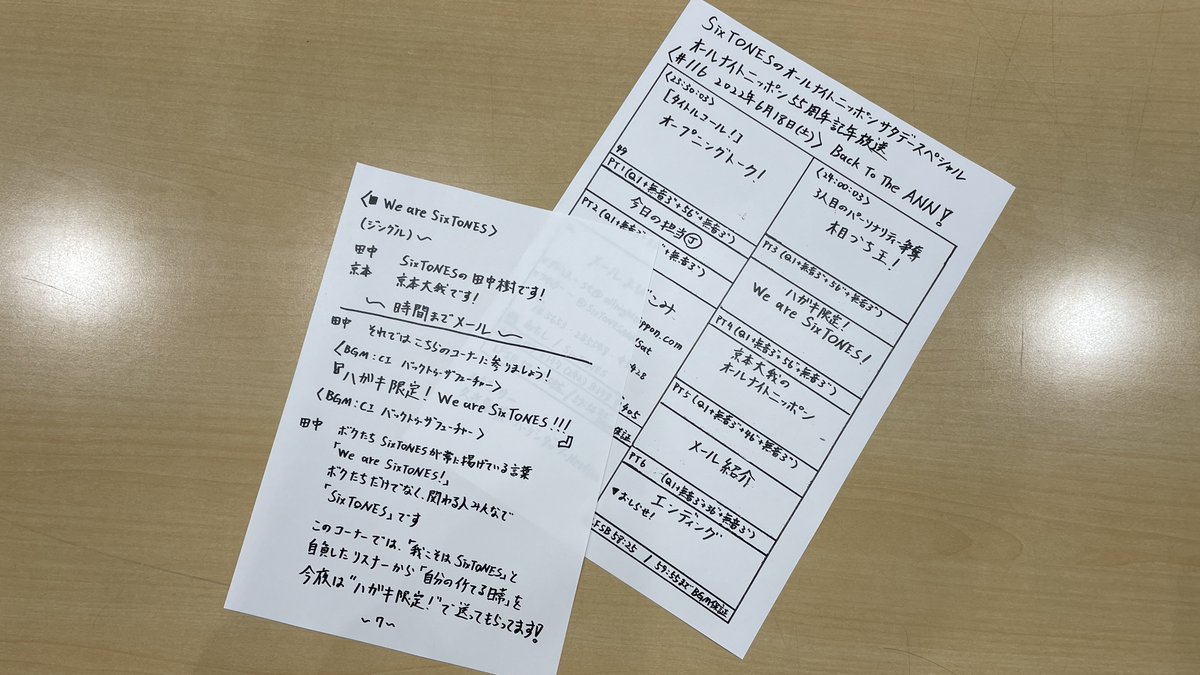 <■ We are SixTONES>
(ジングル)～
田中 SixTONESの田中樹です!
京本 京本大我です!
～ 時間までメール ～
田中 それではこちらのコーナーに参りましょう!
<BGM:CI バックトゥザフューチャー>
『ハガキ限定! We are SixTONES!!!』
<BGM:CI バックトゥザフューチャー>
田中 ボクたちSixTONESが常に掲げている言葉
「We are SixTONES!」
ボクたちだけでなく、関わる人みんなで
「SixTONES」です
このコーナーでは、「我こそはSixTONES」と
自負したリスナーから「自分のイケてる日常」を
今夜は"ハガキ限定!"で送ってもらってます!
～7～
SixTONESのオールナイトニッポンサタデースペシャル
オールナイトニッポン55周年記年放送
<#116 2022年6月18日(土)> Back To The ANN!
<23:30:03>
[タイトルコール!]
オープニングトーク!
49
PT1(Q1+無音3"+56"+無音3")
今日の担当Ⓙ
PT2(Q1+無音3"
+無音3")
ippon.com
Sat
428
405
保証
<24:00:03>
3人目のパーソナリティー争奪
相づち王!
PT3(Q1+無音3"+56"+無音3")
ハガキ限定!
We are SixTONES!
PT4(Q1+無音3"+56"+無音3")
京本大我の
オールナイトニッポン
PT5(Q1+無音3"+46"+無音3")
メール紹介
PT6 (Q1+無音3"+36"+無音3")
エンディング
▼おしらせ!
FSB58:25 / 59:55までBGM保証